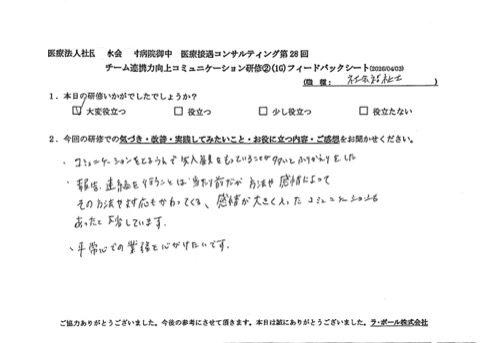 医療法人社団 水会 村病院御中 医療接遇コンサルティング第28回
チーム連携力向上コミュニケーション研修②(1G)フィードバックシート(2026/04/03)
(職 種: 社会福祉士)
1. 本日の研修いかがでしたでしょうか?
☑ 大変役立つ □ 役立つ □ 少し役立つ □ 役立たない
2. 今回の研修での気づき・改善・実践してみたいこと・お役に立つ内容・ご感想をお聞かせください。
・コミュニケーションをとるうえで 先入観をもっていることが多いとふりかえりをした
・報告、連絡を行うことは当たり前だが 方法や感情によって
その方法や対応もかわってくる、感情が大きく入ったコミュニケーションも
あったと反省しています。
・平常心での業務を心がけたいです。
ご協力ありがとうございました。今後の参考にさせて頂きます。本日は誠にありがとうございました。ラ・ポール株式会社